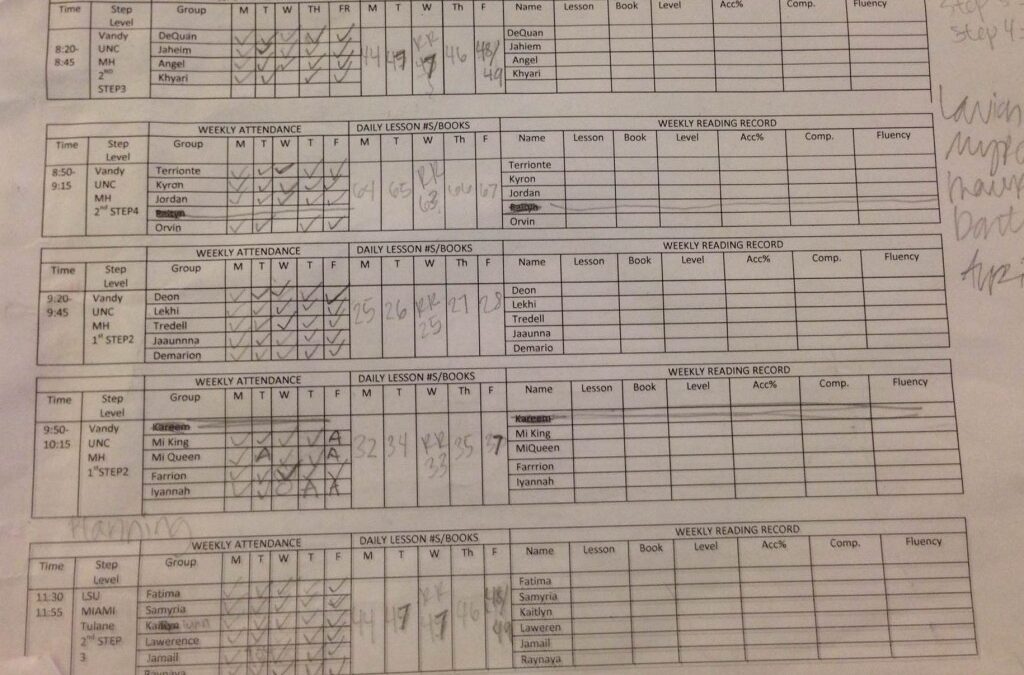 Time Step Level Group M T W TH FR M T W Th F Name Lesson Book Level Acc% Comp. Fluency
8:20-8:45
Vandy
UNC
MH
2ND
STEP3
DeQuan
Jaheim
Angel
Khyari
44 47 RR 47 46 48/49
DeQuan
Jahiem
Angel
Khyari
WEEKLY ATTENDANCE DAILY LESSON #S/BOOKS WEEKLY READING RECORD
Time Step Level Group M T W T F M T W Th F Name Lesson Book Level Acc% Comp. Fluency
8:50-
9:15
Vandy
UNC
MH
2nd STEP4
Terrionte
Kyron
Jordan
Orvin
64 65 RR 63 66 67
Terrionte
Kyron
Jordan
Orvin
WEEKLY ATTENDANCE DAILY LESSON #S/BOOKS WEEKLY READING RECORD
Time Step Level Group M T W T F M T W Th F Name Lesson Book Level Acc% Comp. Fluency
9:20-
9:45
Vandy
UNC
MH
1st STEP2
Deon
Lekhi
Tredell
Jaaunnna
Demarion
25 26 RR 25 27 28
Deon
Lekhi
Tredell
Jaaunna
Demario
WEEKLY ATTENDANCE DAILY LESSON #S/BOOKS WEEKLY READING RECORD
Time Step Level Group M T W T F M T W Th F Name Lesson Book Level Acc% Comp. Fluency
9:50-
10:15
Vandy
UNC
MH
1stSTEP2
Kareem
Mi King A
Mi Queen A A
Farrion
Iyannah A A
32 34 RR 33 35 37
Kareem
Mi King
MiQueen
Farrrion
Iyannah
Harmning
WEEKLY ATTENDANCE DAILY LESSON #S/BOOKS WEEKLY READING RECORD
Time Step Level Group M T W T F M T W Th F Name Lesson Book Level Acc% Comp. Fluency
11:30
11:55
LSU
MIAMI
Tulane
2nd STEP
3
Fatima
Samyria
Kaitlyn
Lawerence
Jamail
Raynaya
44 47 RR 47 46 48/49
Fatima
Samyria
Kaitlyn
Laweren
Jamail
Raynaya